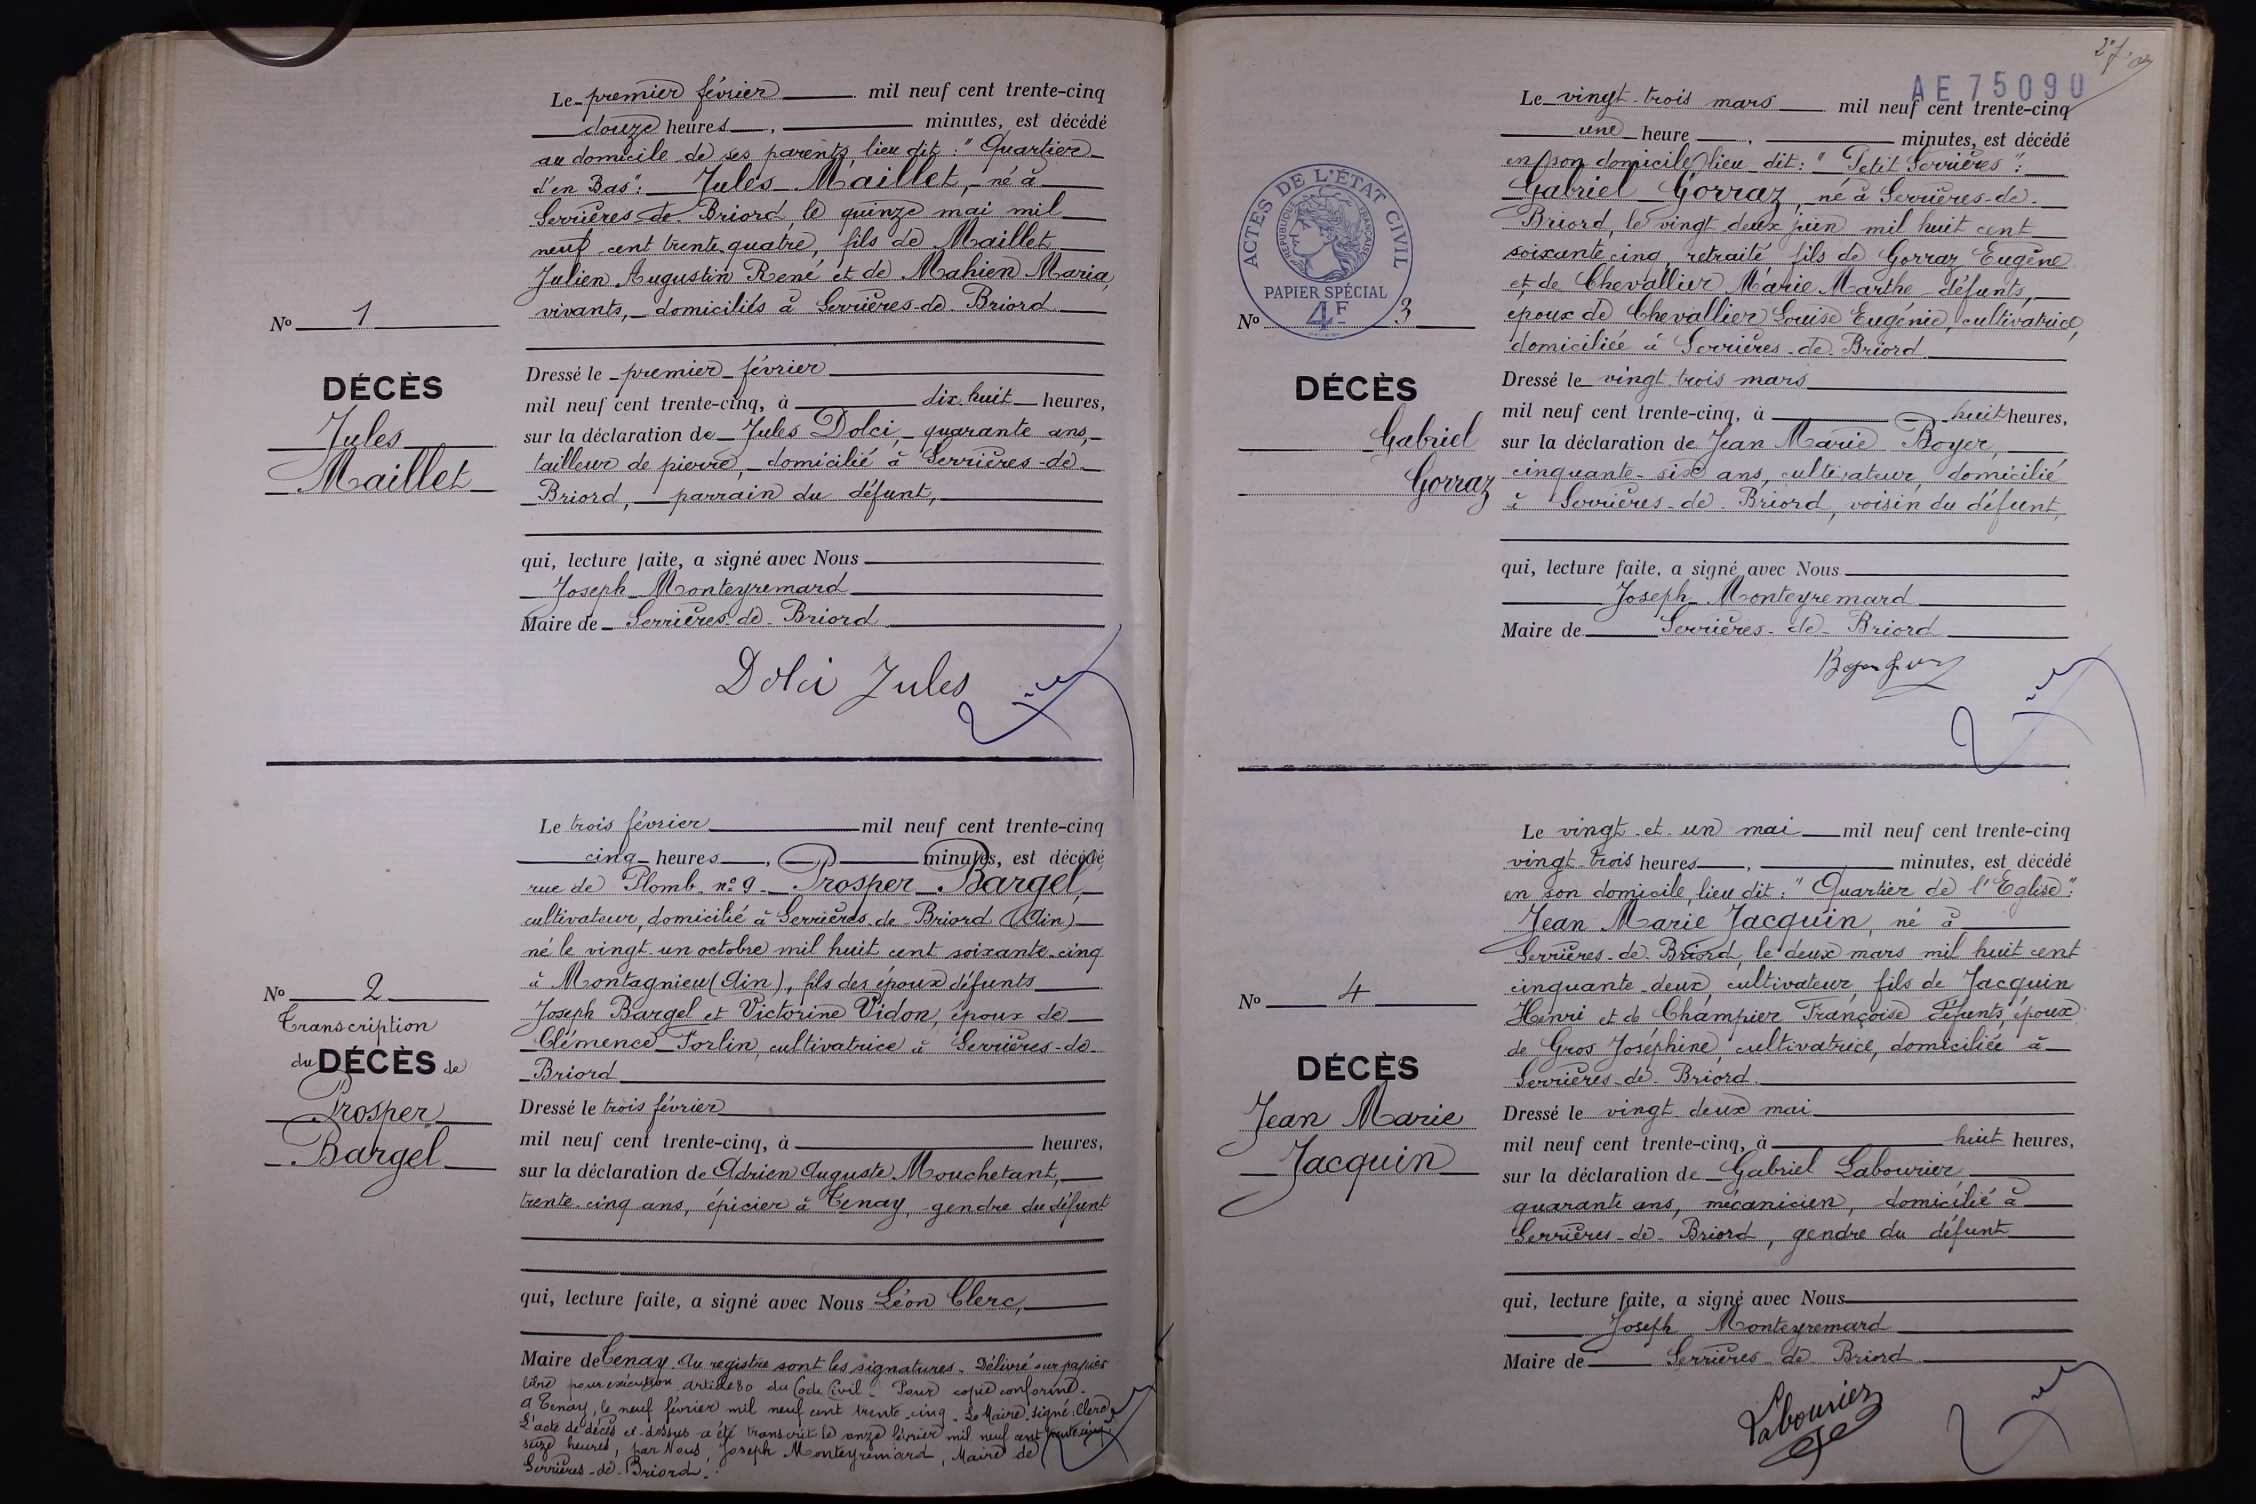 Le premier février mil neuf cent trente-cinq
douze heures, minutes, est décédé
au domicile de ses parents, lieu dit : "Quartier
d'en Bas" : Jules Maillet, né à
Serrières-de-Briord le quinze mai mil
neuf cent trente quatre, fils de Maillet
Julien Augustin René et de Mahien Maria,
vivants, domiciliés à Serrières-de-Briord
No 1
DÉCÈS
Jules
Maillet
Dressé le premier février
mil neuf cent trente-cinq, à dix-huit heures,
sur la déclaration de Jules Dolci, quarante ans,
tailleur de pierre, domicilié à Serrières-de-
Briord, parrain du défunt,
qui, lecture faite, a signé avec Nous
Joseph Monteyremard
Maire de Serrières-de-Briord
Dolci Jules
Le trois février mil neuf cent trente-cinq
cinq heures, minutes, est décédé
rue de Plomb n° 9 Prosper Bargel,
cultivateur, domicilié à Serrières-de-Briord (Ain)
né le vingt-un octobre mil huit cent soixante-cinq
à Montagnieu (Ain), fils des époux défunts
Joseph Bargel et Victorine Vidon, époux de
Clémence Torlin, cultivatrice à Serrières-de-
Briord
No 2
Transcription
du DÉCÈS de
Prosper
Bargel
Dressé le trois février
mil neuf cent trente-cinq, à heures,
sur la déclaration de Adrien Auguste Mouchetant,
trente-cinq ans, épicier à Tenay, gendre du défunt
qui, lecture faite, a signé avec Nous Léon Clerc,
Maire de Tenay. Au registre sont les signatures. Délivré sur papier
libre pour exécution article 80 du Code Civil - Pour copie conforme.
A Tenay, le neuf février mil neuf cent trente-cinq. Le Maire signé: Clerc
L'acte de décès ci-dessus a été transcrit le onze février mil neuf cent trente cinq
seize heures, par Nous Joseph Monteyremard, Maire de
Serrières-de-Briord.
AE 75090
Le vingt-trois mars mil neuf cent trente-cinq
une heure, minutes, est décédé
en son domicile, lieu dit : "Petit Serrières" :
Gabriel Gorraz, né à Serrières-de-
Briord, le vingt deux juin mil huit cent
soixante cinq, retraité fils de Gorraz Eugène
et de Chevallier Marie Marthe défunts,
époux de Chevallier Louise Eugénie, cultivatrice,
domiciliée à Serrières-de-Briord
ACTES DE L'ÉTAT CIVIL
RÉPUBLIQUE FRANÇAISE
PAPIER SPÉCIAL
4F
No 3
DÉCÈS
Gabriel
Gorraz
Dressé le vingt-trois mars
mil neuf cent trente-cinq, à huit heures,
sur la déclaration de Jean Marie Boyer,
cinquante-six ans, cultivateur, domicilié
à Serrières-de-Briord, voisin du défunt,
qui, lecture faite, a signé avec Nous
Joseph Monteyremard
Maire de Serrières-de-Briord
Le vingt-et-un mai mil neuf cent trente-cinq
vingt-trois heures, minutes, est décédé
en son domicile, lieu dit : "Quartier de l'Eglise" :
Jean Marie Jacquin, né à
Serrières-de-Briord, le deux mars mil huit cent
cinquante-deux, cultivateur, fils de Jacquin
Henri et de Champier Françoise défunts, époux
de Gros Joséphine, cultivatrice, domiciliée à
Serrières-de-Briord.
No 4
DÉCÈS
Jean Marie
Jacquin
Dressé le vingt-deux mai
mil neuf cent trente-cinq, à huit heures,
sur la déclaration de Gabriel Labourier
quarante ans, mécanicien, domicilié à
Serrières-de-Briord, gendre du défunt
qui, lecture faite, a signé avec Nous
Joseph Monteyremard
Maire de Serrières-de-Briord
Labourier